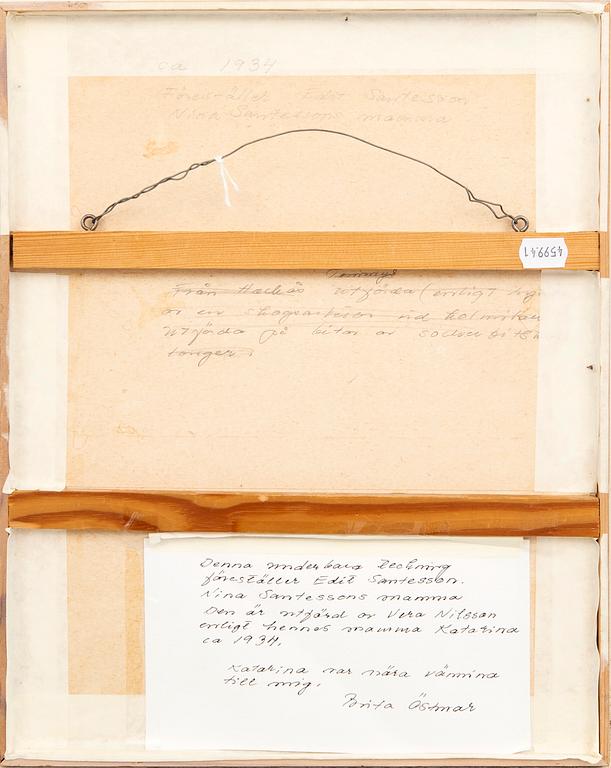 ca 1934
Föreställer Edit Santesson
Nina Santessons mamma
459941
Från Hackås utförda (enligt
av en skogsarbetare vid kolmilan
utförda på bitar av
tonger.
Denna underbara teckning
föreställer Edit Santesson.
Nina Santessons mamma
Den är utförd av Vera Nilsson
enligt hennes mamma Katarina
ca 1934.
Katarina var nära väninna
till mig.
Brita Östmar